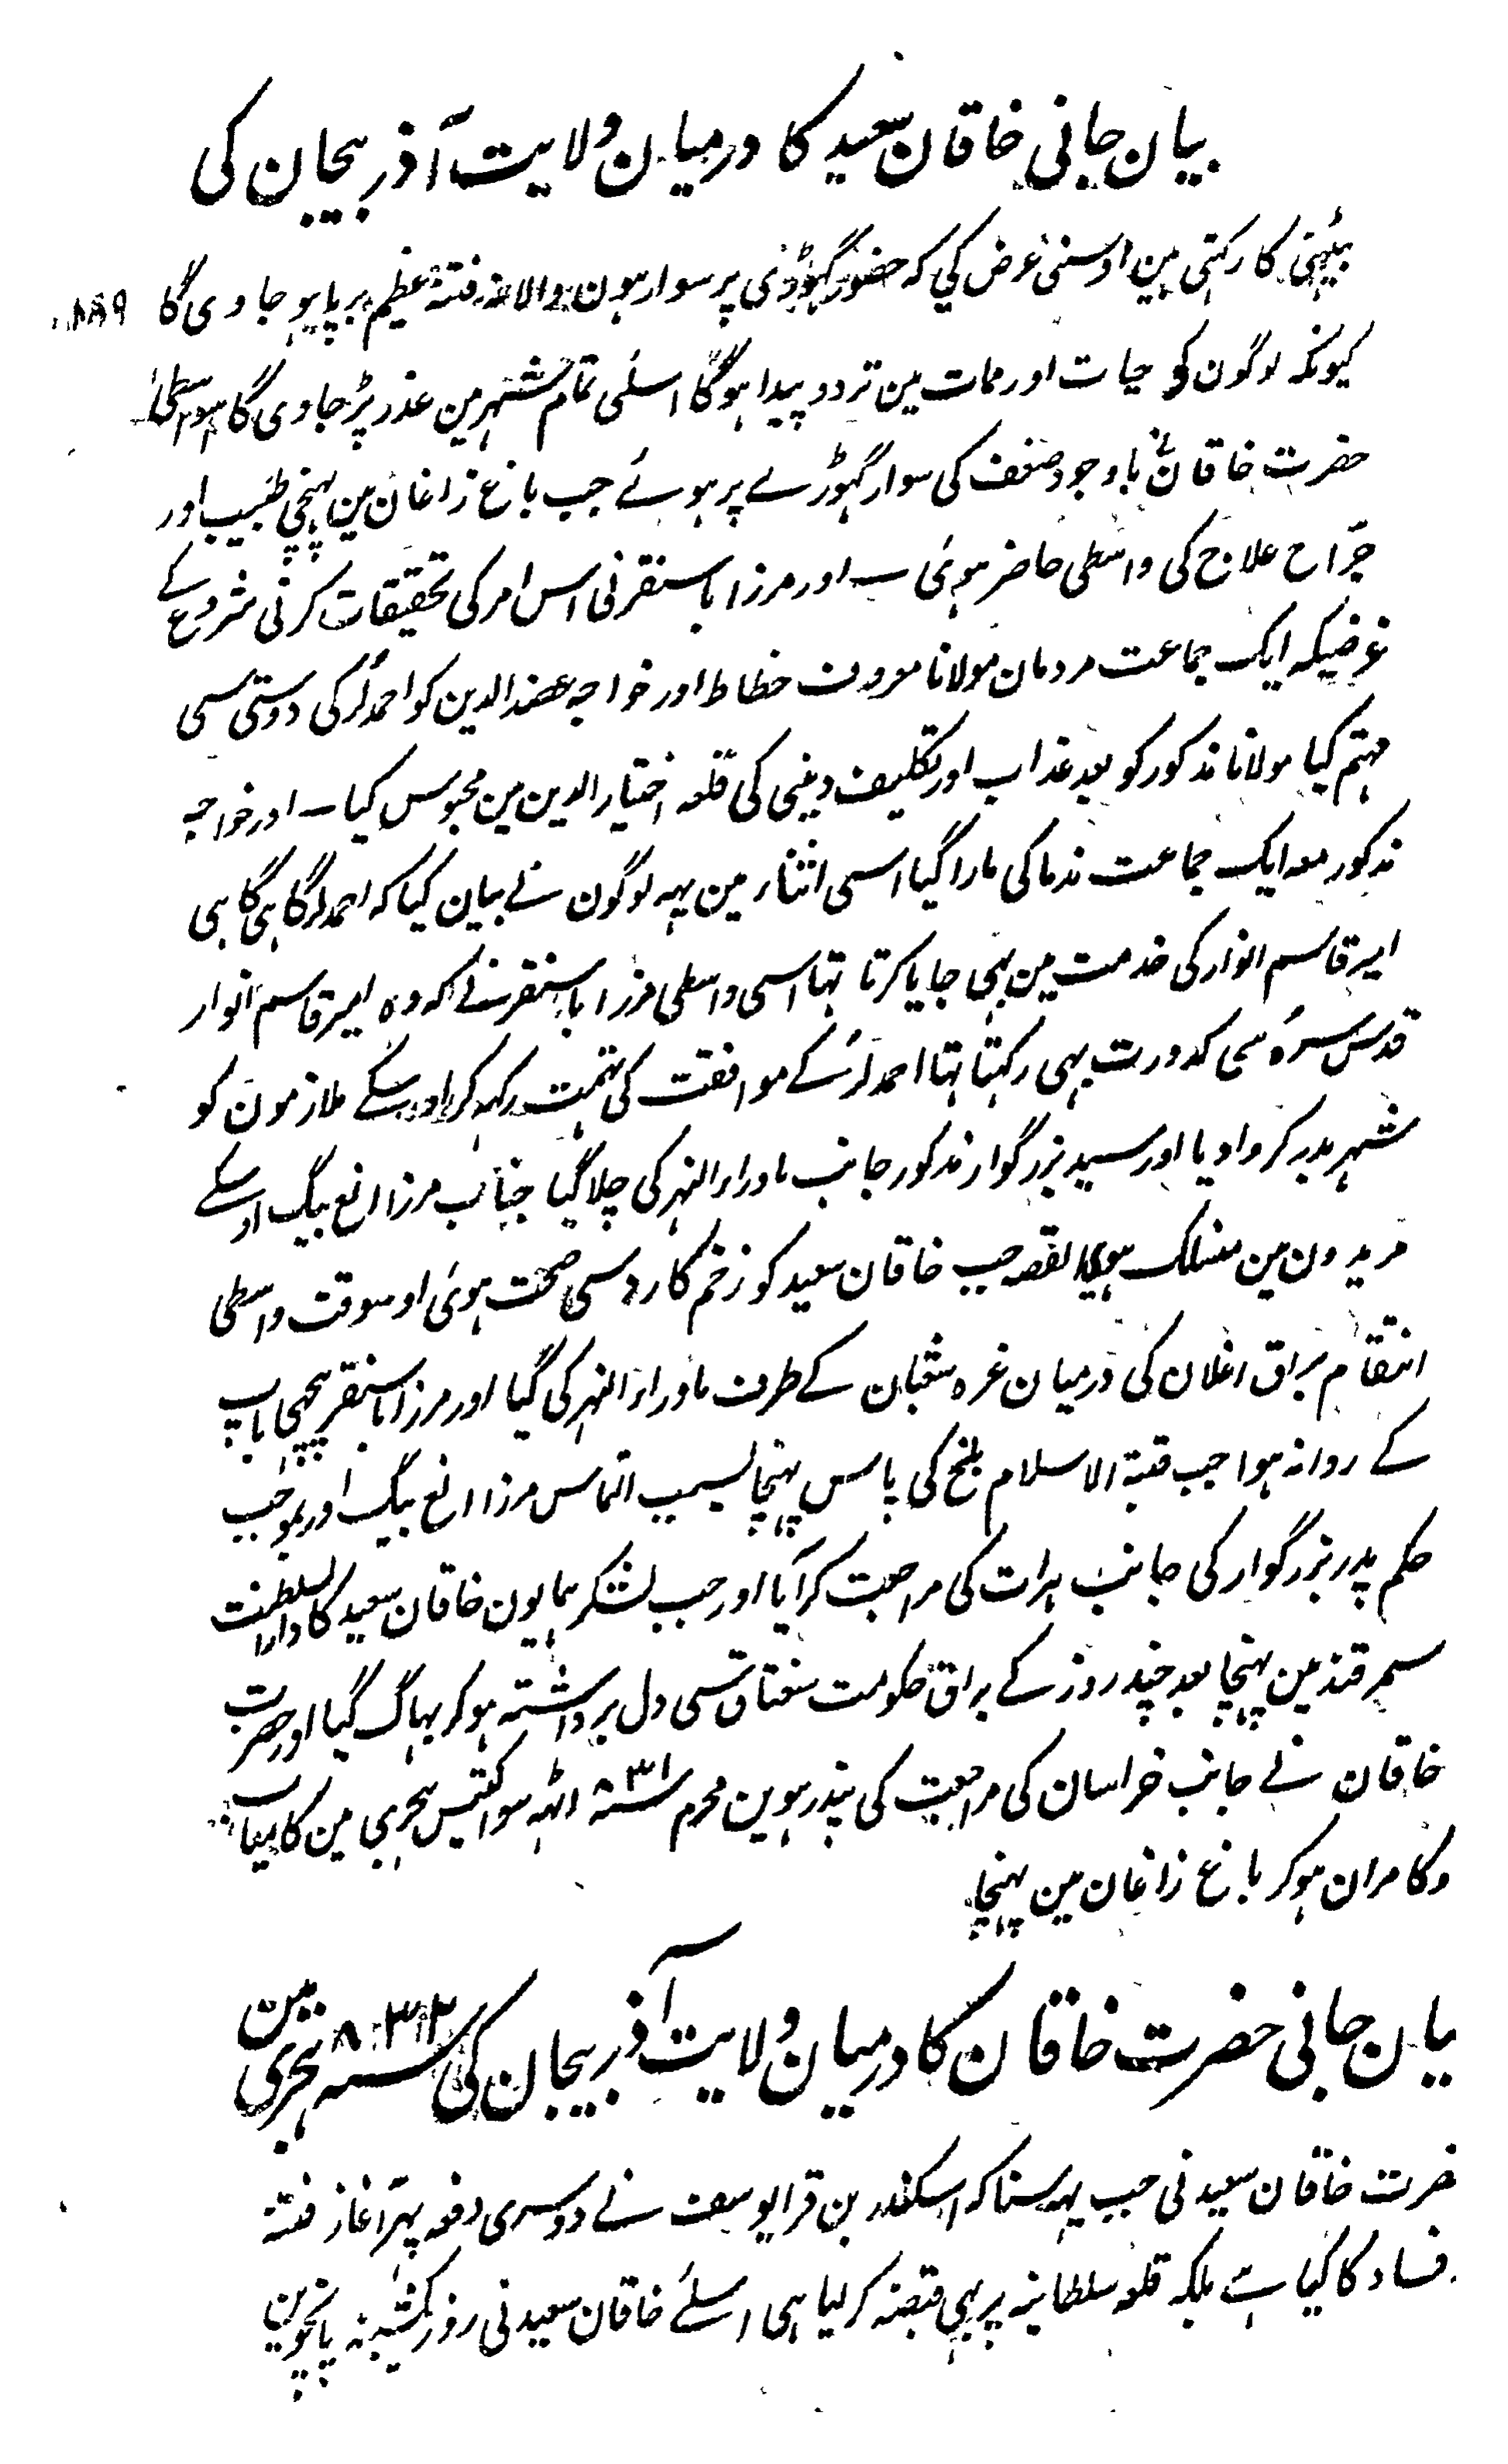 بیان جانی خاقان سعید کا درمیان ولایت آذربیجان کی
بیٹہنی کا رکہتی ہین اوسنی عرض کی کہ حضور گہوڈی پر سوار ہون والا نہ فتنۂ عظیم برپا ہو جاوی گا ۸۸۹
کیونکہ لوگون کو حیات اور ممات مین تردد پیدا ہوگا اسلئی تمام شہر مین عذر پڑ جاوی گا اسواسطی
حضرت خاقان باوجود ضعف کی سوار گہوڑے پر ہوئے جب باغ زاغان مین پہنچی طبیب اور
جراح علاج کی واسطی حاضر ہوئی ۔ اور مرزا باسنقر نی اس امر کی تحقیقات کرنی شروع کے
غرضیکہ ایک جماعت مردمان مولانا معروف خطاط اور خواجہ عضد الدین کو احمد لُر کی دوستی سی
متہم کیا مولانا مذکور کو بعد عذاب اور تکلیف دینی کی قلعہ اختیار الدین مین محبوس کیا ۔ اور خواجہ
مذکور معہ ایک جماعت ندما کی مارا گیا اسی اثناء مین یہہ لوگون نے بیان کیا کہ احمد لر گاہی گاہی
امیر قاسم انوار کی خدمت مین بہی جایا کرتا تہا اسی واسطی مرزا باسنقر نے کہ وہ امیر قاسم انوار
قدس سرہ سی کدورت بہی رکہتا تہا احمد لر کے موافقت کی تہمت رکہہ کر اوسکے ملازمون کو
شہر بدر کروا دیا اور سید بزرگوار مذکور جانب ماوراء النہر کی چلا گیا جناب مرزا الغ بیگ اوسکے
مریدون مین منسلک ہوا القصہ جب خاقان سعید کو زخم کارد سی صحت ہوئی اوسوقت واسطی
انتقام براق اغلان کی درمیان غرہ شعبان کے طرف ماوراء النہر کی گیا اور مرزا باسنقر پیچہی باپ
کے روانہ ہوا جب قبتہ الاسلام بلخ کی پاس پہنچا بسبب التماس مرزا الغ بیگ اور بموجب
حکم پدر بزرگوار کی جانب ہرات کی مراجعت کر آیا اور جب لشکر ہمایون خاقان سعید کا دار السلطنت
سمرقند مین پہنچا بعد چند روز کے براق حکومت سغناق سی دل برداشتہ ہو کر بہاگ گیا اور حضرت
خاقان نے جانب خراسان کی مراجعت کی پندرہوین محرم سنہ ۸۳۱ اٹہہ سو اکتیس ہجری مین کامیاب
وکامران ہو کر باغ زاغان مین پہنچا
بیان جانی حضرت خاقان کا درمیان ولایت آذربیجان کی سنہ ۸۳۲ ہجری مین
حضرت خاقان سعید نی جب یہہ سنا کہ اسکندر بن قرا یوسف نے دوسری دفعہ پہر آغاز فتنہ
فساد کا کیا ہے بلکہ قلعہ سلطانیہ پر بہی قبضہ کر لیا ہی اسلئے خاقان سعید نی روز یکشنبہ پانچوین